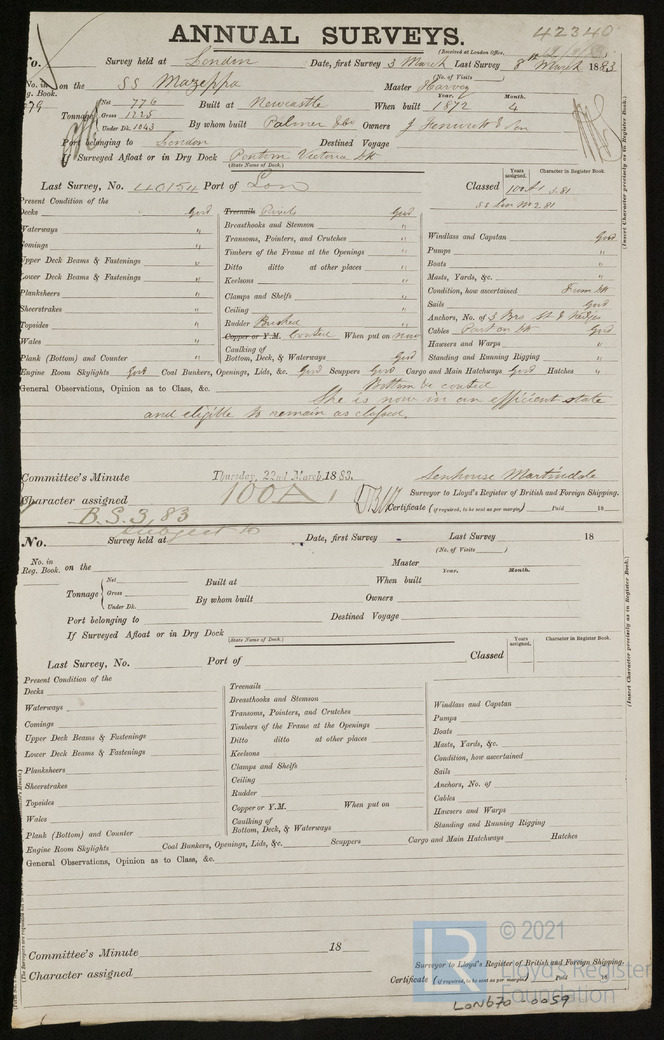 ANNUAL SURVEYS.
42340
(Received at London Office,
No. Survey held at London Date, first Survey 3 March Last Survey 8th March 1883
(No. of Visits )
No. in Reg. Book. on the SS Mazeppa Master Harvey
Year. Month.
Tonnage Net 776 Built at Newcastle When built 1872 4
Gross 1225
Under Dk. 1043 By whom built Palmer & Co Owners J Fenwick & Son
Port belonging to London Destined Voyage
If Surveyed Afloat or in Dry Dock Pontoon Victoria Dk
(State Name of Dock.)
Years assigned. Character in Register Book.
Last Survey, No. 40154 Port of Lon Classed 100A1 3.81
SS Lon No 2.81
(Insert Character precisely as in Register Book.)
Present Condition of the
Decks Good
Waterways "
Comings "
Upper Deck Beams & Fastenings "
Lower Deck Beams & Fastenings "
Planksheers "
Sheerstrakes "
Topsides "
Wales "
Plank (Bottom) and Counter "
Treenails Rivets Good
Breasthooks and Stemson "
Transoms, Pointers, and Crutches "
Timbers of the Frame at the Openings "
Ditto ditto at other places "
Keelsons "
Clamps and Shelfs "
Ceiling "
Rudder Bushed "
Copper or Y.M. Coated When put on now
Caulking of
Bottom, Deck, & Waterways Good
Windlass and Capstan Good
Pumps "
Boats "
Masts, Yards, &c. "
Condition, how ascertained From Dk
Sails Good
Anchors, No. of 3 Brs St & Kedge
Cables Part on Dk Good
Hawsers and Warps "
Standing and Running Rigging "
Engine Room Skylights Good Coal Bunkers, Openings, Lids, &c. Good Scuppers Good Cargo and Main Hatchways Good Hatches "
General Observations, Opinion as to Class, &c. Bottom be coated
She is now in an efficient state
and eligible to remain as classed.
Committee's Minute Thursday, 22nd March 1883. Senhouse Martindale
Character assigned 100A1 Surveyor to Lloyd's Register of British and Foreign Shipping.
Certificate (if required, to be sent as per margin) Paid 18
B.S. 3,83
subject to
No. Survey held at Date, first Survey Last Survey 18
(No. of Visits )
No. in Reg. Book. on the Master
Year. Month.
Tonnage Net Built at When built
Gross
Under Dk. By whom built Owners
Port belonging to Destined Voyage
If Surveyed Afloat or in Dry Dock
(State Name of Dock.)
Years assigned. Character in Register Book.
Last Survey, No. Port of Classed
(Insert Character precisely as in Register Book.)
Present Condition of the
Decks
Waterways
Comings
Upper Deck Beams & Fastenings
Lower Deck Beams & Fastenings
Planksheers
Sheerstrakes
Topsides
Wales
Plank (Bottom) and Counter
Treenails
Breasthooks and Stemson
Transoms, Pointers, and Crutches
Timbers of the Frame at the Openings
Ditto ditto at other places
Keelsons
Clamps and Shelfs
Ceiling
Rudder
Copper or Y.M. When put on
Caulking of
Bottom, Deck, & Waterways
Windlass and Capstan
Pumps
Boats
Masts, Yards, &c.
Condition, how ascertained
Sails
Anchors, No. of
Cables
Hawsers and Warps
Standing and Running Rigging
Engine Room Skylights Coal Bunkers, Openings, Lids, &c. Scuppers Cargo and Main Hatchways Hatches
General Observations, Opinion as to Class, &c.
Committee's Minute 18
Character assigned
Surveyor to Lloyd's Register of British and Foreign Shipping.
Certificate (if required, to be sent as per margin) Paid 18
LR
© 2021
Lloyd's Register
Foundation
LON670-0059